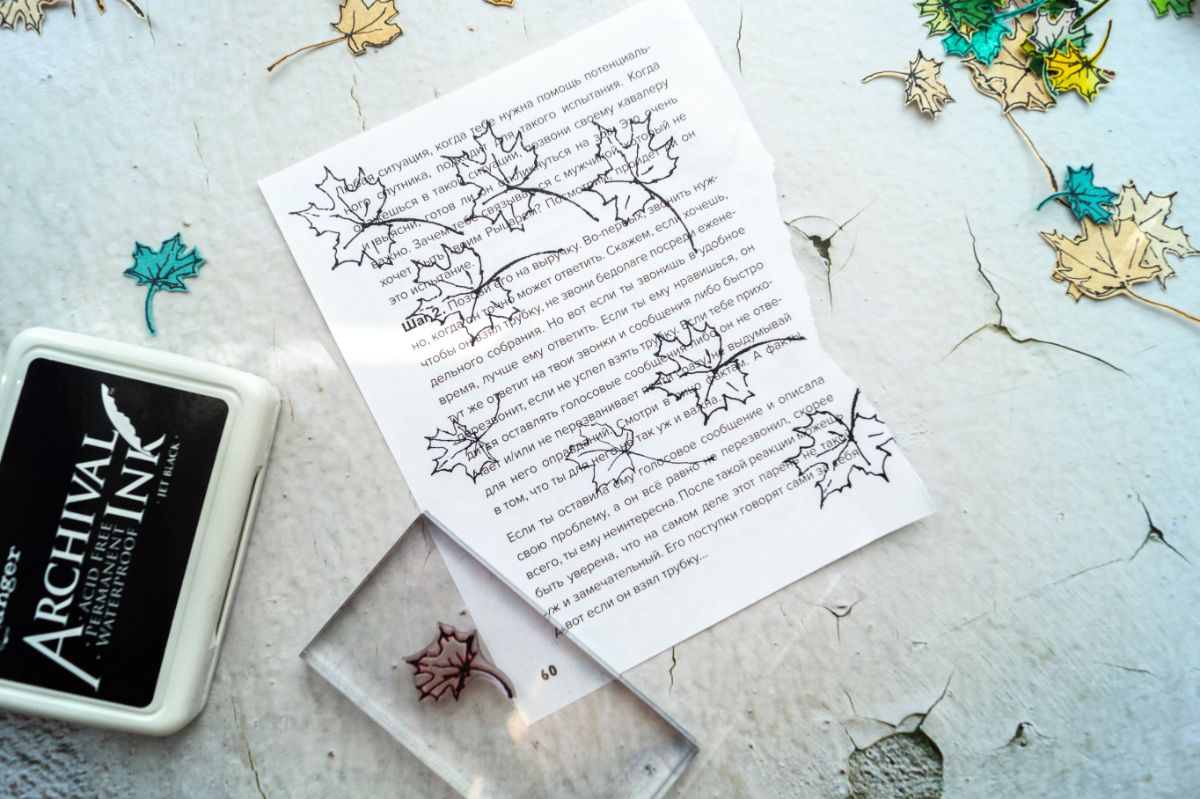 Любая ситуация, когда тебе нужна помощь потенциаль-
ного спутника, подходит для такого испытания. Когда
окажешься в такой ситуации, позвони своему кавалеру
и выясни, готов ли он откликнуться на зов. Это очень
важно. Зачем тебе связываться с мужчиной, который не
хочет быть твоим Рыцарем? Посмотрим, пройдет ли он
это испытание.
Шаг 2. Позови его на выручку. Во-первых, звонить нуж-
но, когда он точно может ответить. Скажем, если хочешь,
чтобы он взял трубку, не звони бедолаге посреди ежене-
дельного собрания. Но вот если ты звонишь в удобное
время, лучше ему ответить. Если ты ему нравишься, он
тут же ответит на твои звонки и сообщения либо быстро
перезвонит, если не успел взять трубку. Если тебе прихо-
дится оставлять голосовые сообщения либо он не отве-
чает и/или не перезванивает сразу, не выдумывай
для него оправданий. Смотри в лицо фактам. А факты
в том, что ты для него не так уж и важна.
Если ты оставила ему голосовое сообщение и описала
свою проблему, а он всё равно не перезвонил, скорее
всего, ты ему неинтересна. После такой реакции можешь
быть уверена, что на самом деле этот парень не такой
уж и замечательный. Его поступки говорят сами за себя.
А вот если он взял трубку...
60
anger
ARCHIVAL
· ACID FREE
· PERMANENT
· WATERPROOF
INK
· JET BLACK ·